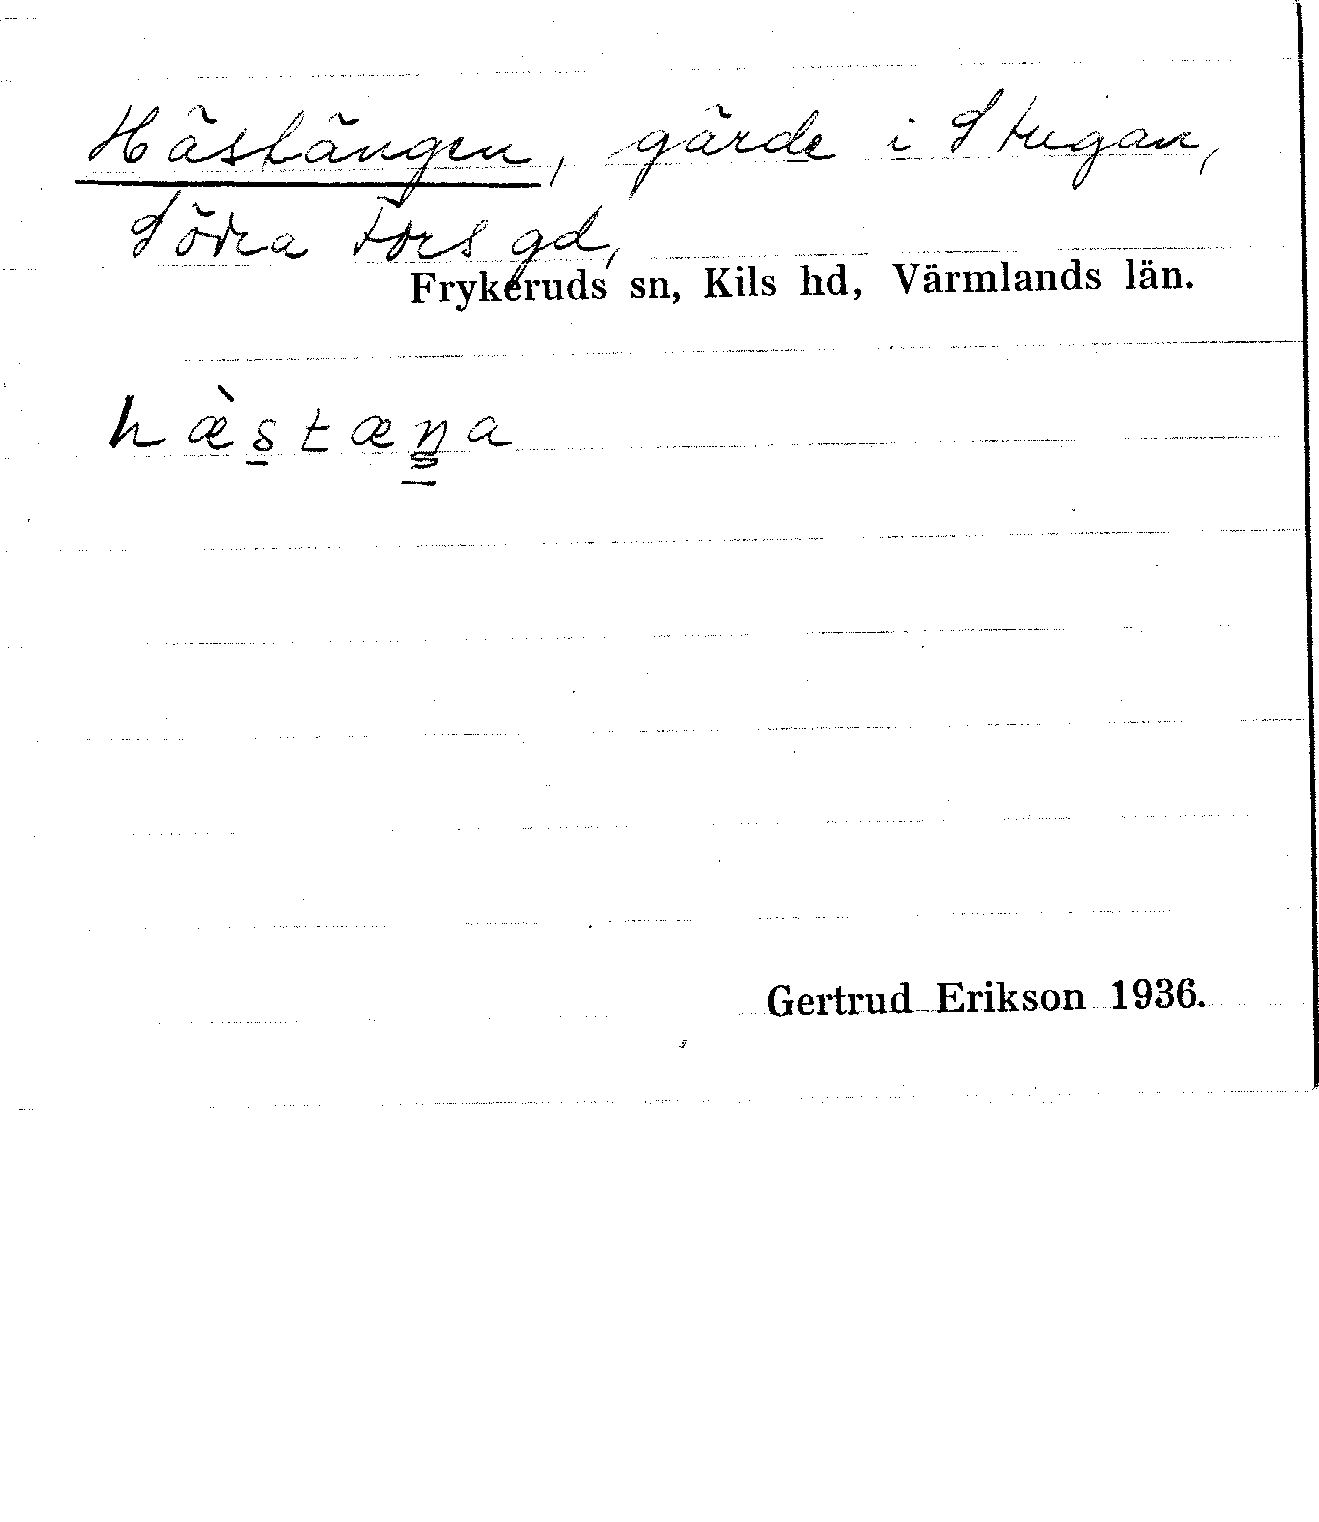 Hästängen, gärde i Stugan,
Södra Fors gd,
Frykeruds sn, Kils hd, Värmlands län.
hæ̀stæŋa
Gertrud Erikson 1936.